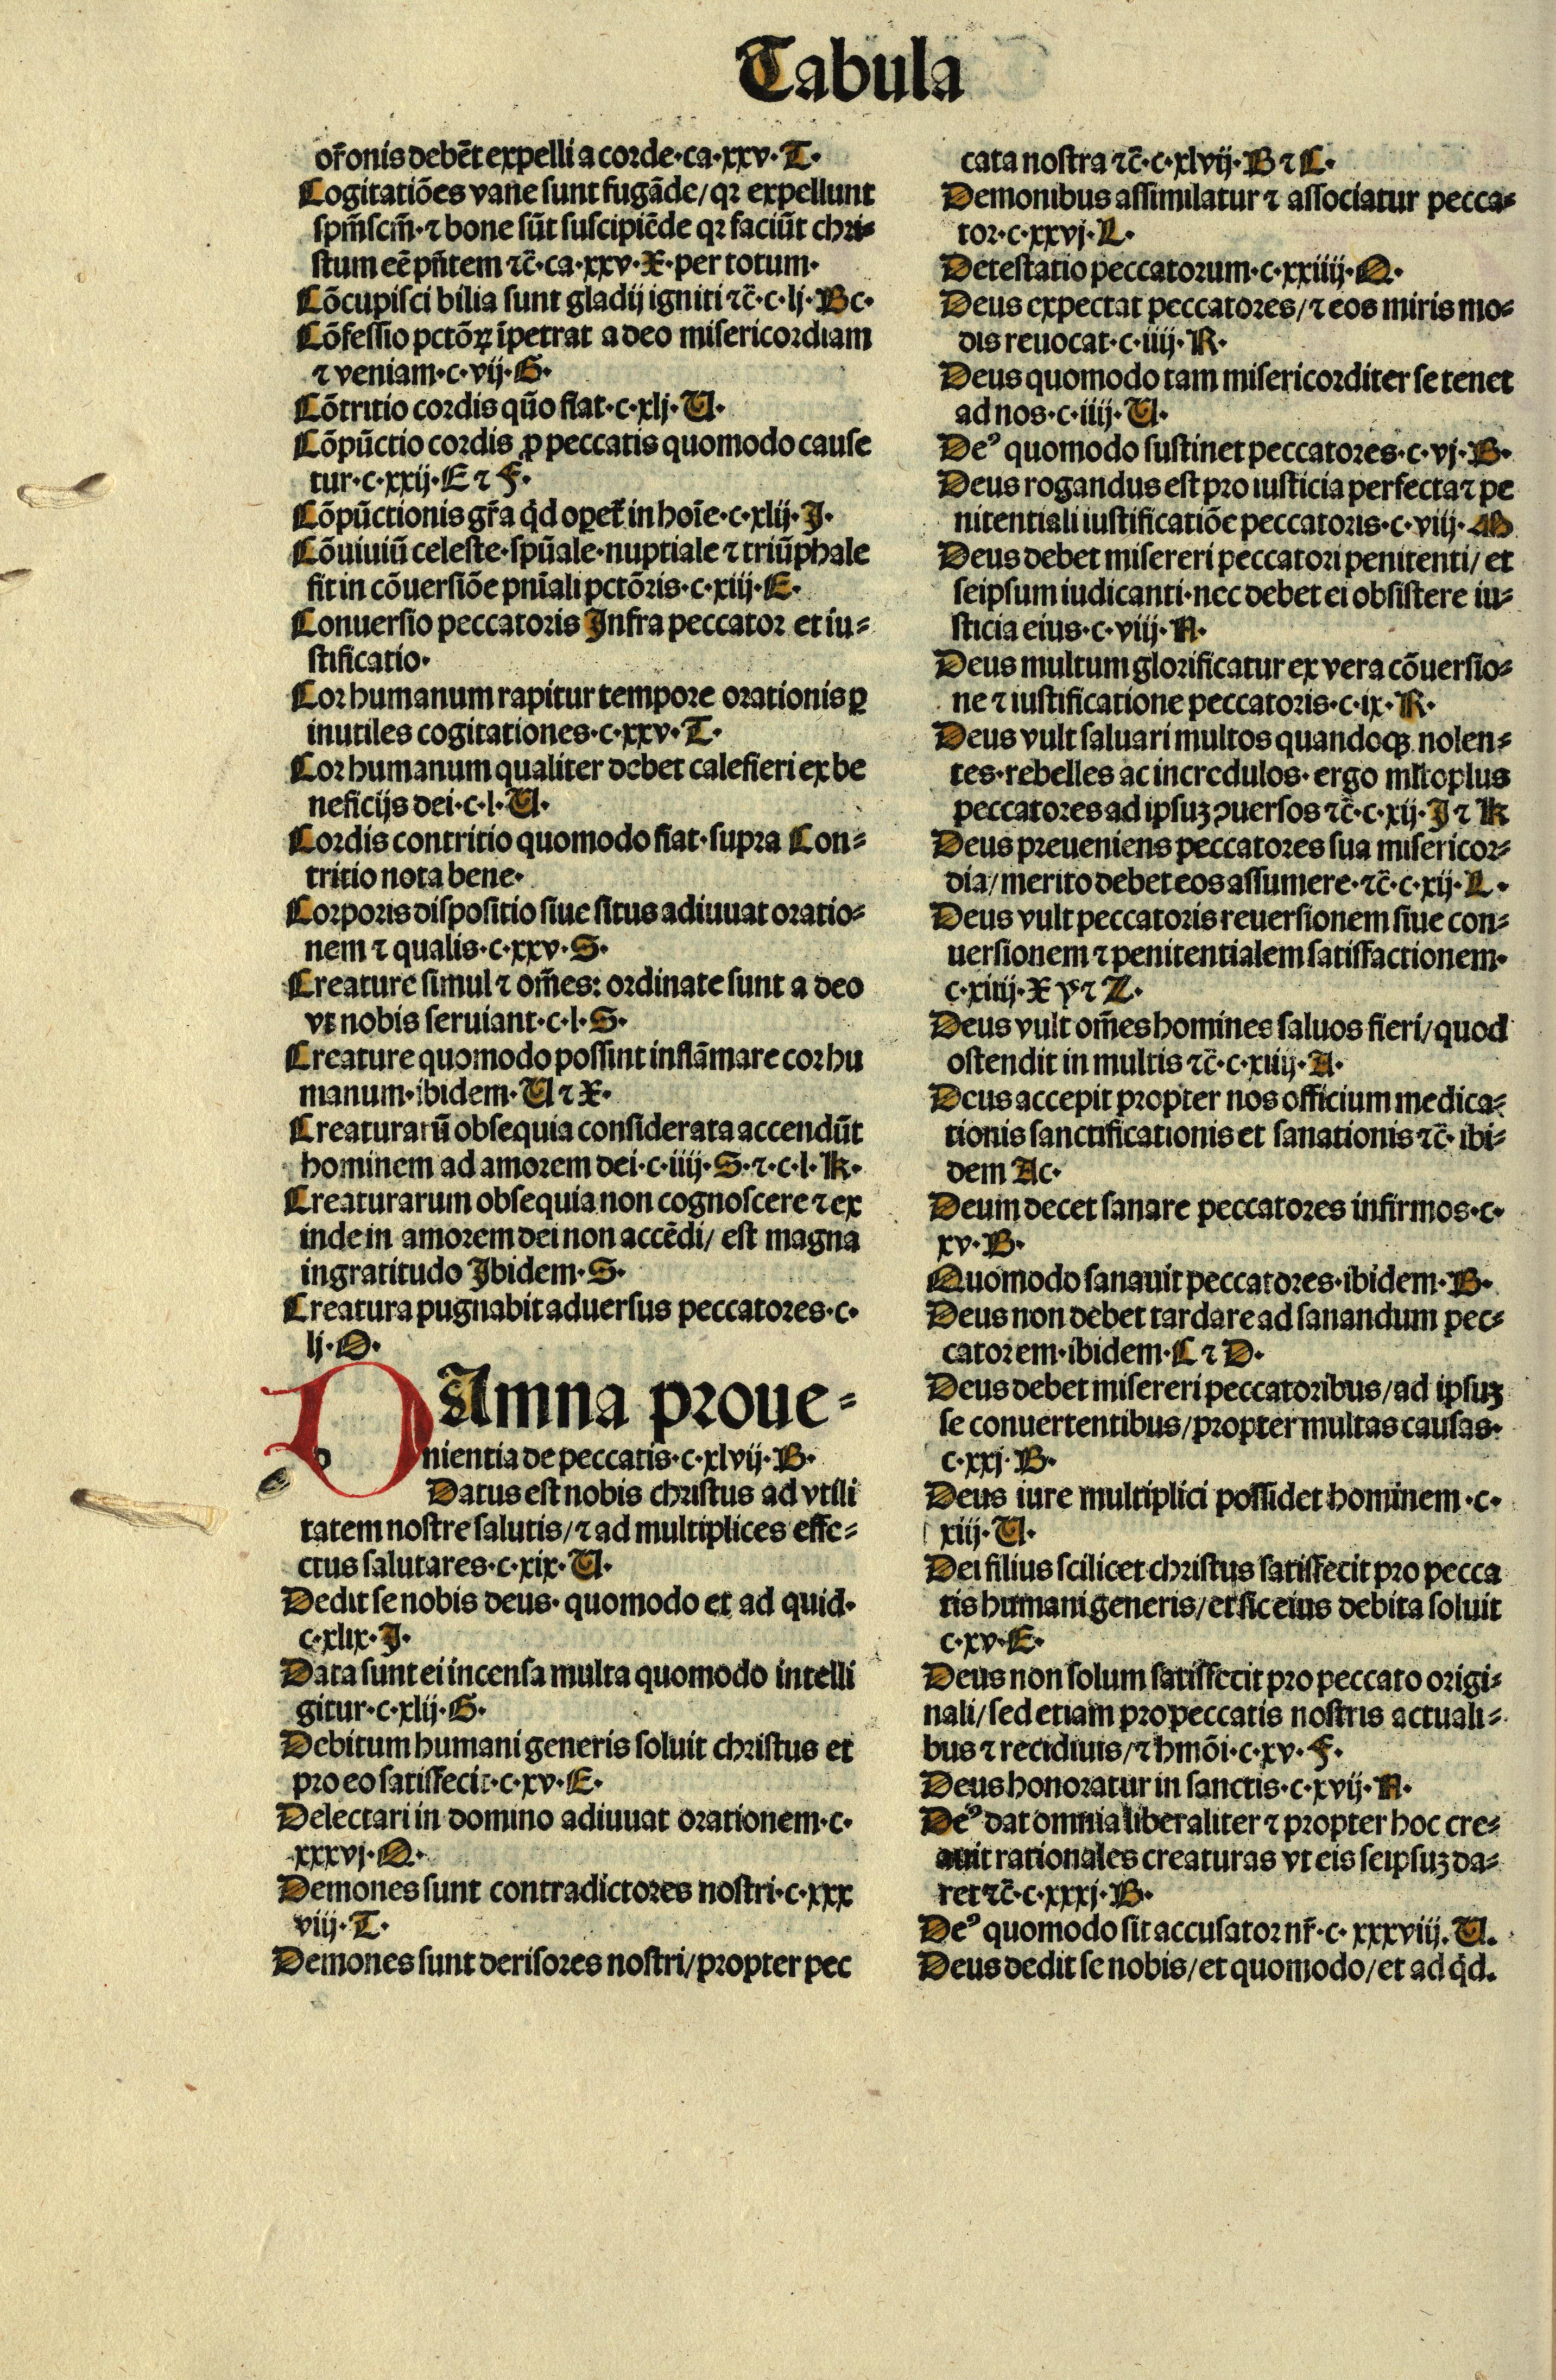 Tabula
or̄onis debēt expelli a corde·ca·xxv·T·
Cogitatiōes vane sunt fugāde/qꝛ expellunt
spm̄scm̄·⁊ bone sūt suscipiēde qꝛ faciūt chri⸗
stum eē pn̄tem ⁊c̄·ca·xxv·X·per totum·
Cōcupisci bilia sunt gladij igniti ⁊c̄·c·lj·Bc·
Cōfessio pctōꝝ īpetrat a deo misericordiam
⁊ veniam·c·vij·G·
Cōtritio cordis qūo fiat·c·xlj·U·
Cōpūctio cordis ꝓ peccatis quomodo cause
tur·c·xxij·E ⁊ F·
Cōpūctionis gr̄a qd̄ oꝑet̄ in hoīe·c·xlij·J·
Cōuiuiū celeste·spūale·nuptiale ⁊ triūphale
fit in cōuersiōe pnīali pctōris·c·xiij·E·
Conuersio peccatoris Infra peccator et iu⸗
stificatio·
Cor humanum rapitur tempore orationis ꝑ
inutiles cogitationes·c·xxv·T·
Cor humanum qualiter debet calefieri ex be
neficijs dei·c·l·U·
Cordis contritio quomodo fiat·supra Con⸗
tritio nota bene·
Corporis dispositio siue situs adiuuat oratio⸗
nem ⁊ qualis·c·xxv·S·
Creature simul ⁊ om̄es: ordinate sunt a deo
vt nobis seruiant·c·l·S·
Creature quomodo possint inflāmare cor hu
manum·ibidem·U ⁊ X·
Creaturarū obsequia considerata accendūt
hominem ad amorem dei·c·iiij·S·⁊·c·l·K·
Creaturarum obsequia non cognoscere ⁊ ex
inde in amorem dei non accēdi/ est magna
ingratitudo Ibidem·S·
Creatura pugnabit aduersus peccatores·c·
lj·O·
DAmna proue⸗
nientia de peccatis·c·xlvij·B·
Datus est nobis christus ad vtili
tatem nostre salutis/⁊ ad multiplices effe⸗
ctus salutares·c·xix·U·
Dedit se nobis deus· quomodo et ad quid·
c·xlix·J·
Data sunt ei incensa multa quomodo intelli
gitur·c·xlij·G·
Debitum humani generis soluit christus et
pro eo satisfecit·c·xv·E·
Delectari in domino adiuuat orationem·c·
xxxvj·Q·
Demones sunt contradictores nostri·c·xxx
viij·T·
Demones sunt derisores nostri/propter pec
cata nostra ⁊c̄·c·xlvij·B ⁊ C·
Demonibus assimilatur ⁊ associatur pecca⸗
tor·c·xxvj·L·
Detestatio peccatorum·c·xxiiij·Q·
Deus expectat peccatores/⁊ eos miris mo⸗
dis reuocat·c·iiij·R·
Deus quomodo tam misericorditer se tenet
ad nos·c·iiij·U·
Deꝰ quomodo sustinet peccatores·c·vj·B·
Deus rogandus est pro iusticia perfecta ⁊ pe
nitentiali iustificatiōe peccatoris·c·viij·M
Deus debet misereri peccatori penitenti/ et
seipsum iudicanti·nec debet ei obsistere iu⸗
sticia eius·c·viij·N·
Deus multum glorificatur ex vera cōuersio⸗
ne ⁊ iustificatione peccatoris·c·ix·R·
Deus vult saluari multos quandoqꝫ nolen⸗
tes·rebelles ac incredulos·ergo ml̄toplus
peccatores ad ipsuꝫ ꝯuersos ⁊c̄·c·xij·J ⁊ K
Deus preueniens peccatores sua misericor⸗
dia/merito debet eos assumere·⁊c̄·c·xij·L·
Deus vult peccatoris reuersionem siue con⸗
uersionem ⁊ penitentialem satisfactionem·
c·xiiij·X Y ⁊ Z·
Deus vult om̄es homines saluos fieri/quod
ostendit in multis ⁊c̄·c·xiiij·A·
Deus accepit propter nos officium medica⸗
tionis sanctificationis et sanationis ⁊c̄·ibi⸗
dem Ac·
Deum decet sanare peccatores infirmos·c·
xv·B·
Quomodo sanauit peccatores·ibidem·B·
Deus non debet tardare ad sanandum pec⸗
catorem·ibidem·C ⁊ D·
Deus debet misereri peccatoribus/ad ipsuꝫ
se conuertentibus/propter multas causas·
c·xxj·B·
Deus iure multiplici possidet hominem·c·
xiij·U·
Dei filius scilicet christus satisfecit pro pecca
tis humani generis/et sic eius debita soluit
c·xv·E·
Deus non solum satisfecit pro peccato origi⸗
nali/sed etiam pro peccatis nostris actuali⸗
bus ⁊ recidiuis/⁊ hmōi·c·xv·F·
Deus honoratur in sanctis·c·xvij·N·
Deꝰ dat omnia liberaliter ⁊ propter hoc cre⸗
auit rationales creaturas vt eis seipsuꝫ da⸗
ret ⁊c̄·c·xxxj·B·
Deꝰ quomodo sit accusator nr̄·c·xxxviij.U.
Deus dedit se nobis/et quomodo/et ad qd̄.